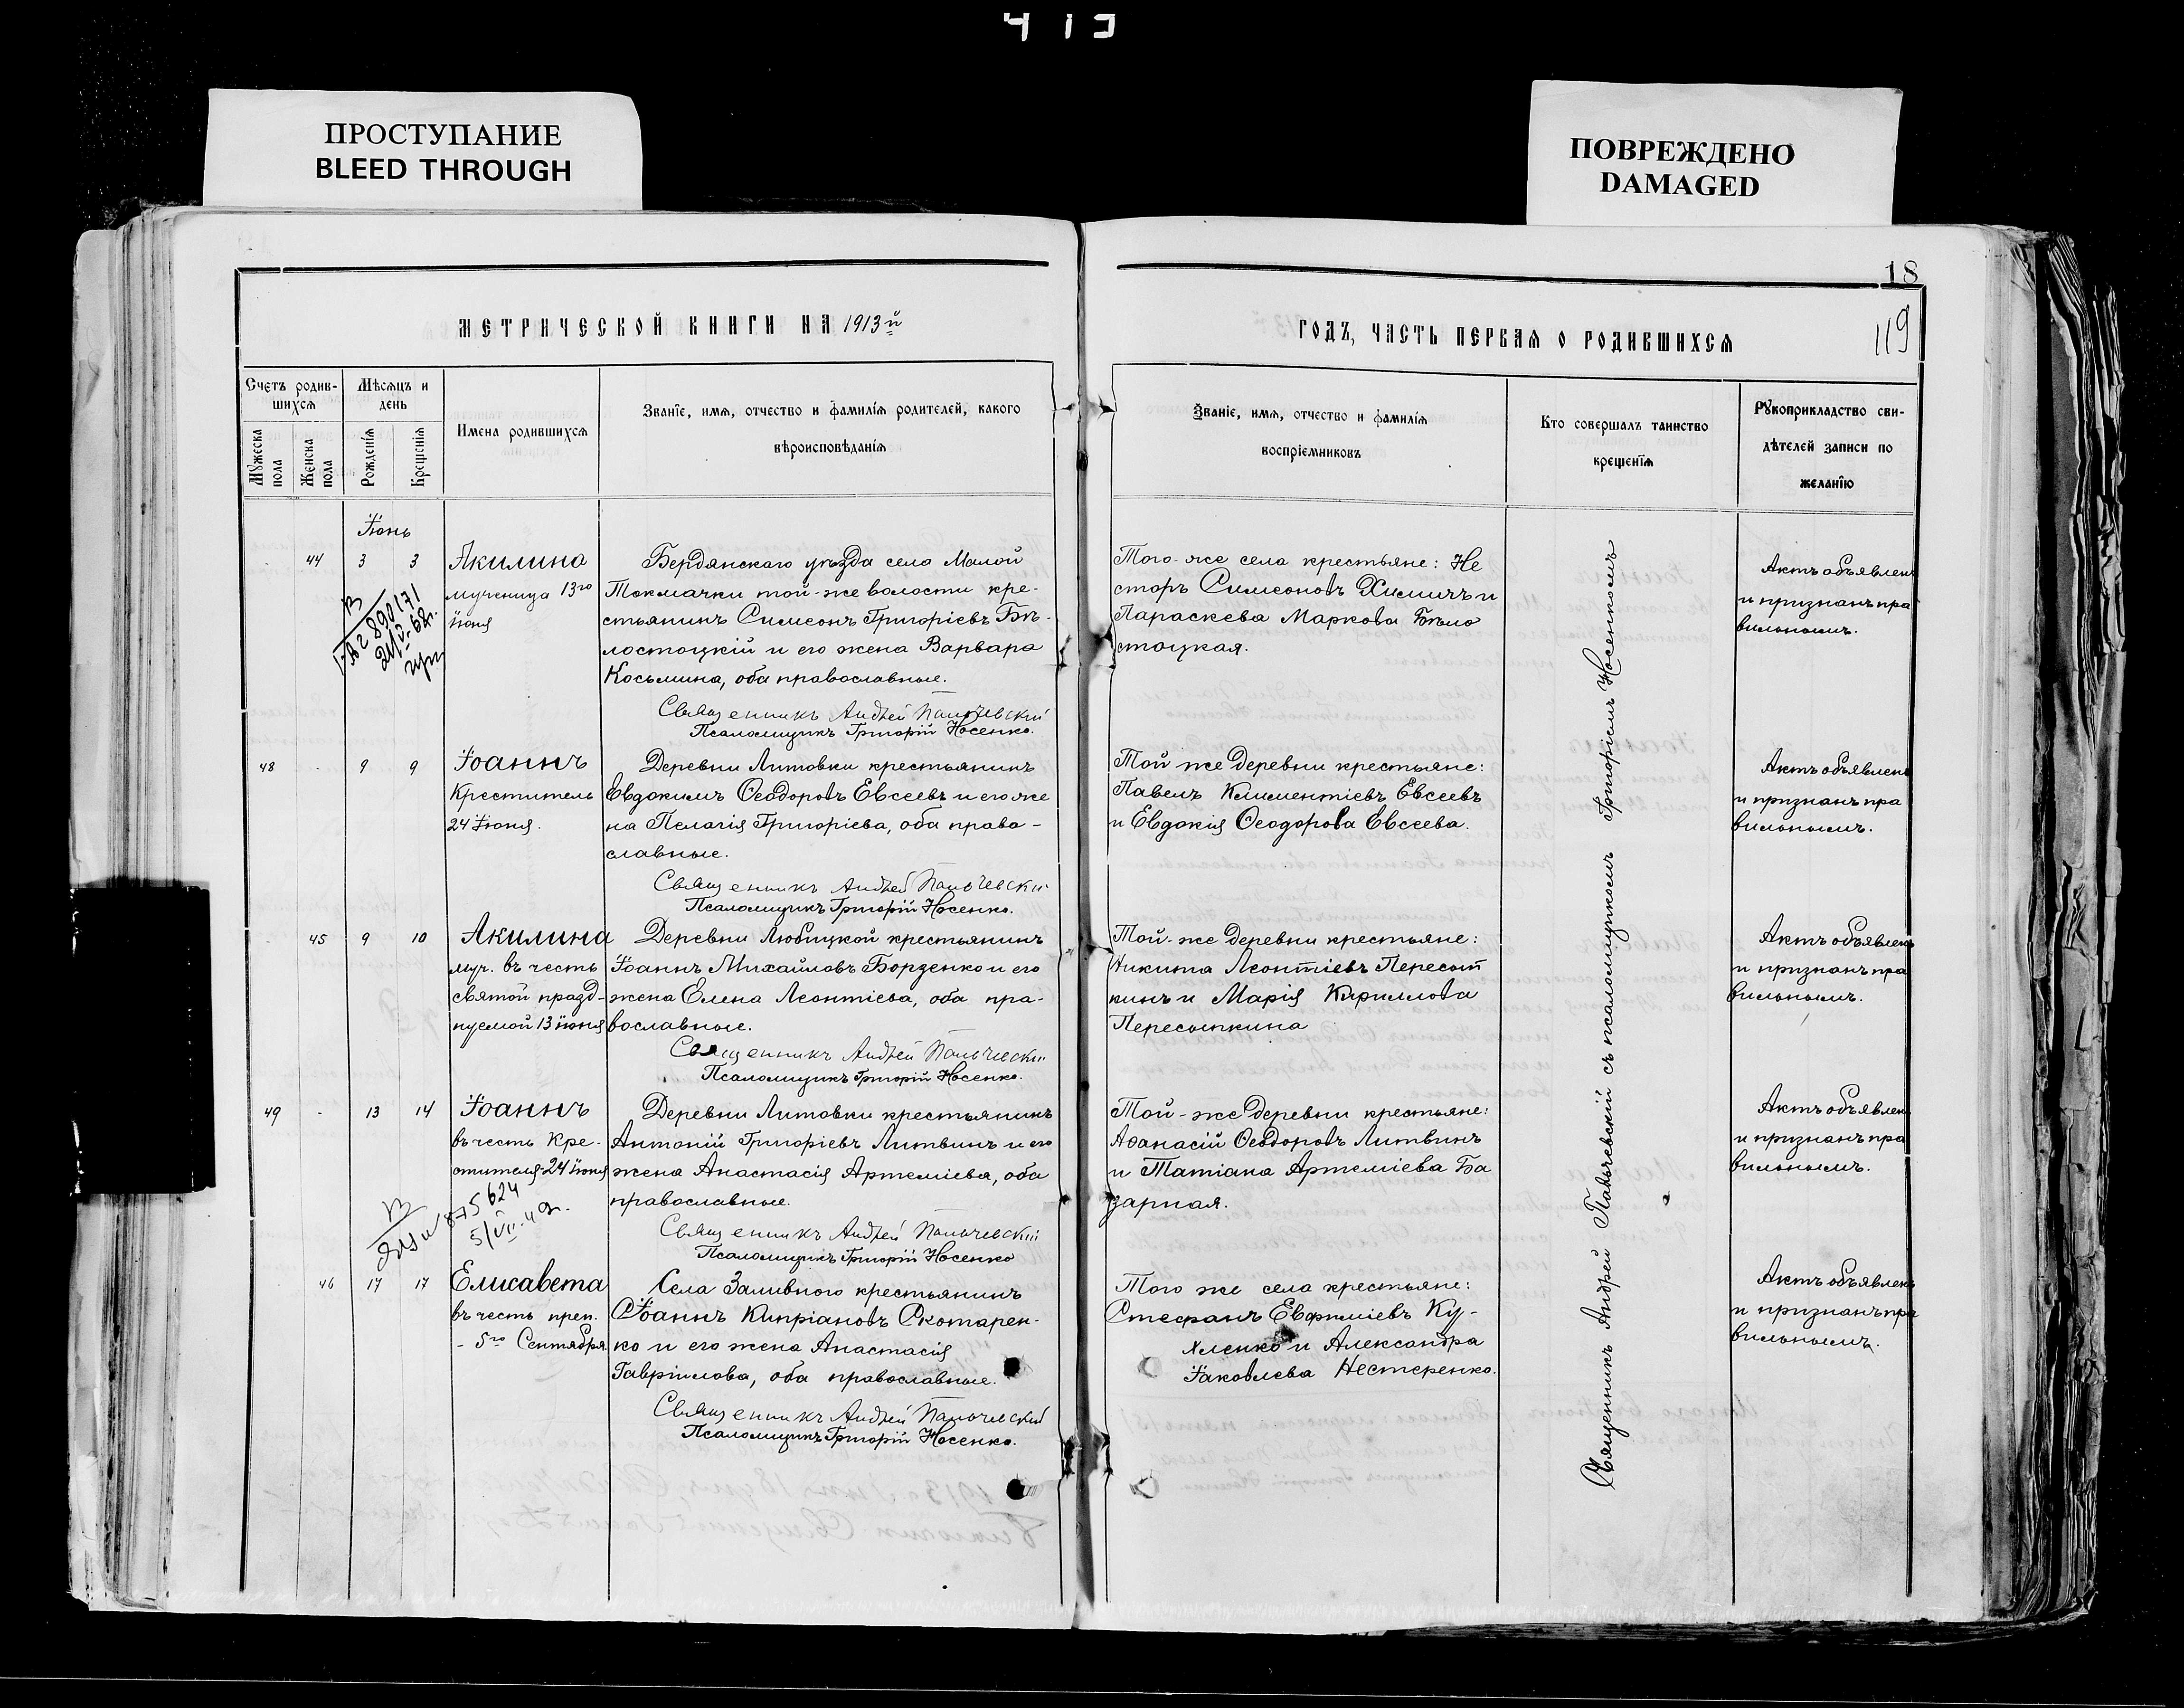 413
ПРОСТУПАНИЕ
BLEED THROUGH
ПОВРЕЖДЕНО
DAMAGED
18
119
МЕТРИЧЕСКОЙ КНИГИ НА 1913й
ГОДЪ, ЧАСТЬ ПЕРВАЯ О РОДИВШИХСЯ
Счетъ родив-
шихся
Мѣсяцъ и
день
Мужеска
пола
Женска
пола
Рожденія
Крещенія
Имена родившихся
Званіе, имя, отчество и фамилія родителей, какого
вѣроисповѣданія
Званіе, имя, отчество и фамилія
воспріемниковъ
Кто совершалъ таинство
крещенія
Рукоприкладство сви-
дѣтелей записи по
желанію
Іюнь
44 3 3 Акилина
мученица 13го
іюня
Бердянскаго уѣзда села Малой
Токмачки той-же волости кре-
стьянинъ Симеонъ Григоріевъ Бѣ-
лостоцкій и его жена Варвара
Косьмина, оба православные.
Священникъ Андрей Пальчевскій
Псаломщикъ Григорій Носенко.
Того-же села крестьяне: Не
сторъ Симеоновъ Химичъ и
Параскева Маркова Бѣло
стоцкая.
Актъ объявленъ
и признанъ пра
вильнымъ.
890171
48 9 9 Іоаннъ
Креститель
24 Іюня.
Деревни Литовки крестьянинъ
Евдокимъ Ѳеодоровъ Евсеевъ и его же
на Пелагія Григоріева, оба право-
славные.
Священникъ Андрей Пальчевскій
Псаломщикъ Григорій Носенко.
Той же деревни крестьяне:
Павелъ Климентіевъ Евсеевъ
и Евдокія Ѳеодорова Евсеева.
Актъ объявленъ
и признанъ пра
вильнымъ.
45 9 10 Акилина
муч. въ честь
святой празд-
нуемой 13 іюня
Деревни Любицкой крестьянинъ
Іоаннъ Михайловъ Борзенко и его
жена Елена Леонтіева, оба пра-
вославные.
Священникъ Андрей Пальчевскій
Псаломщикъ Григорій Носенко.
Той-же деревни крестьяне:
Никита Леонтіевъ Пересып
кинъ и Марія Кириллова
Пересыпкина
Актъ объявленъ
и признанъ пра
вильнымъ.
49 13 14 Іоаннъ
въ честь Кре-
стителя 24 Іюня
Деревни Литовки крестьянинъ
Антоній Григоріевъ Литвинъ и его
жена Анастасія Артеміева, оба
православные.
Священникъ Андрей Пальчевскій
Псаломщикъ Григорій Носенко
Той-же деревни крестьяне:
Аѳанасій Ѳеодоровъ Литвинъ
и Татіана Артеміева Ба
зарная.
Актъ объявленъ
и признанъ пра
вильнымъ.
875624
46 17 17 Елисавета
въ честь преп.
- 5го Сентября.
Села Заливного крестьянинъ
Іоаннъ Кипріановъ Скотарен-
ко и его жена Анастасія
Гавріилова, оба православные.
Священникъ Андрей Пальчевскій
Псаломщикъ Григорій Носенко.
Того же села крестьяне:
Стефанъ Евфиміевъ Ку-
хленко и Александра
Іаковлева Нестеренко.
Актъ объявленъ
и признанъ пра
вильнымъ.
Священникъ Андрей Пальчевскій съ псаломщикомъ Григоріемъ Носенкомъ